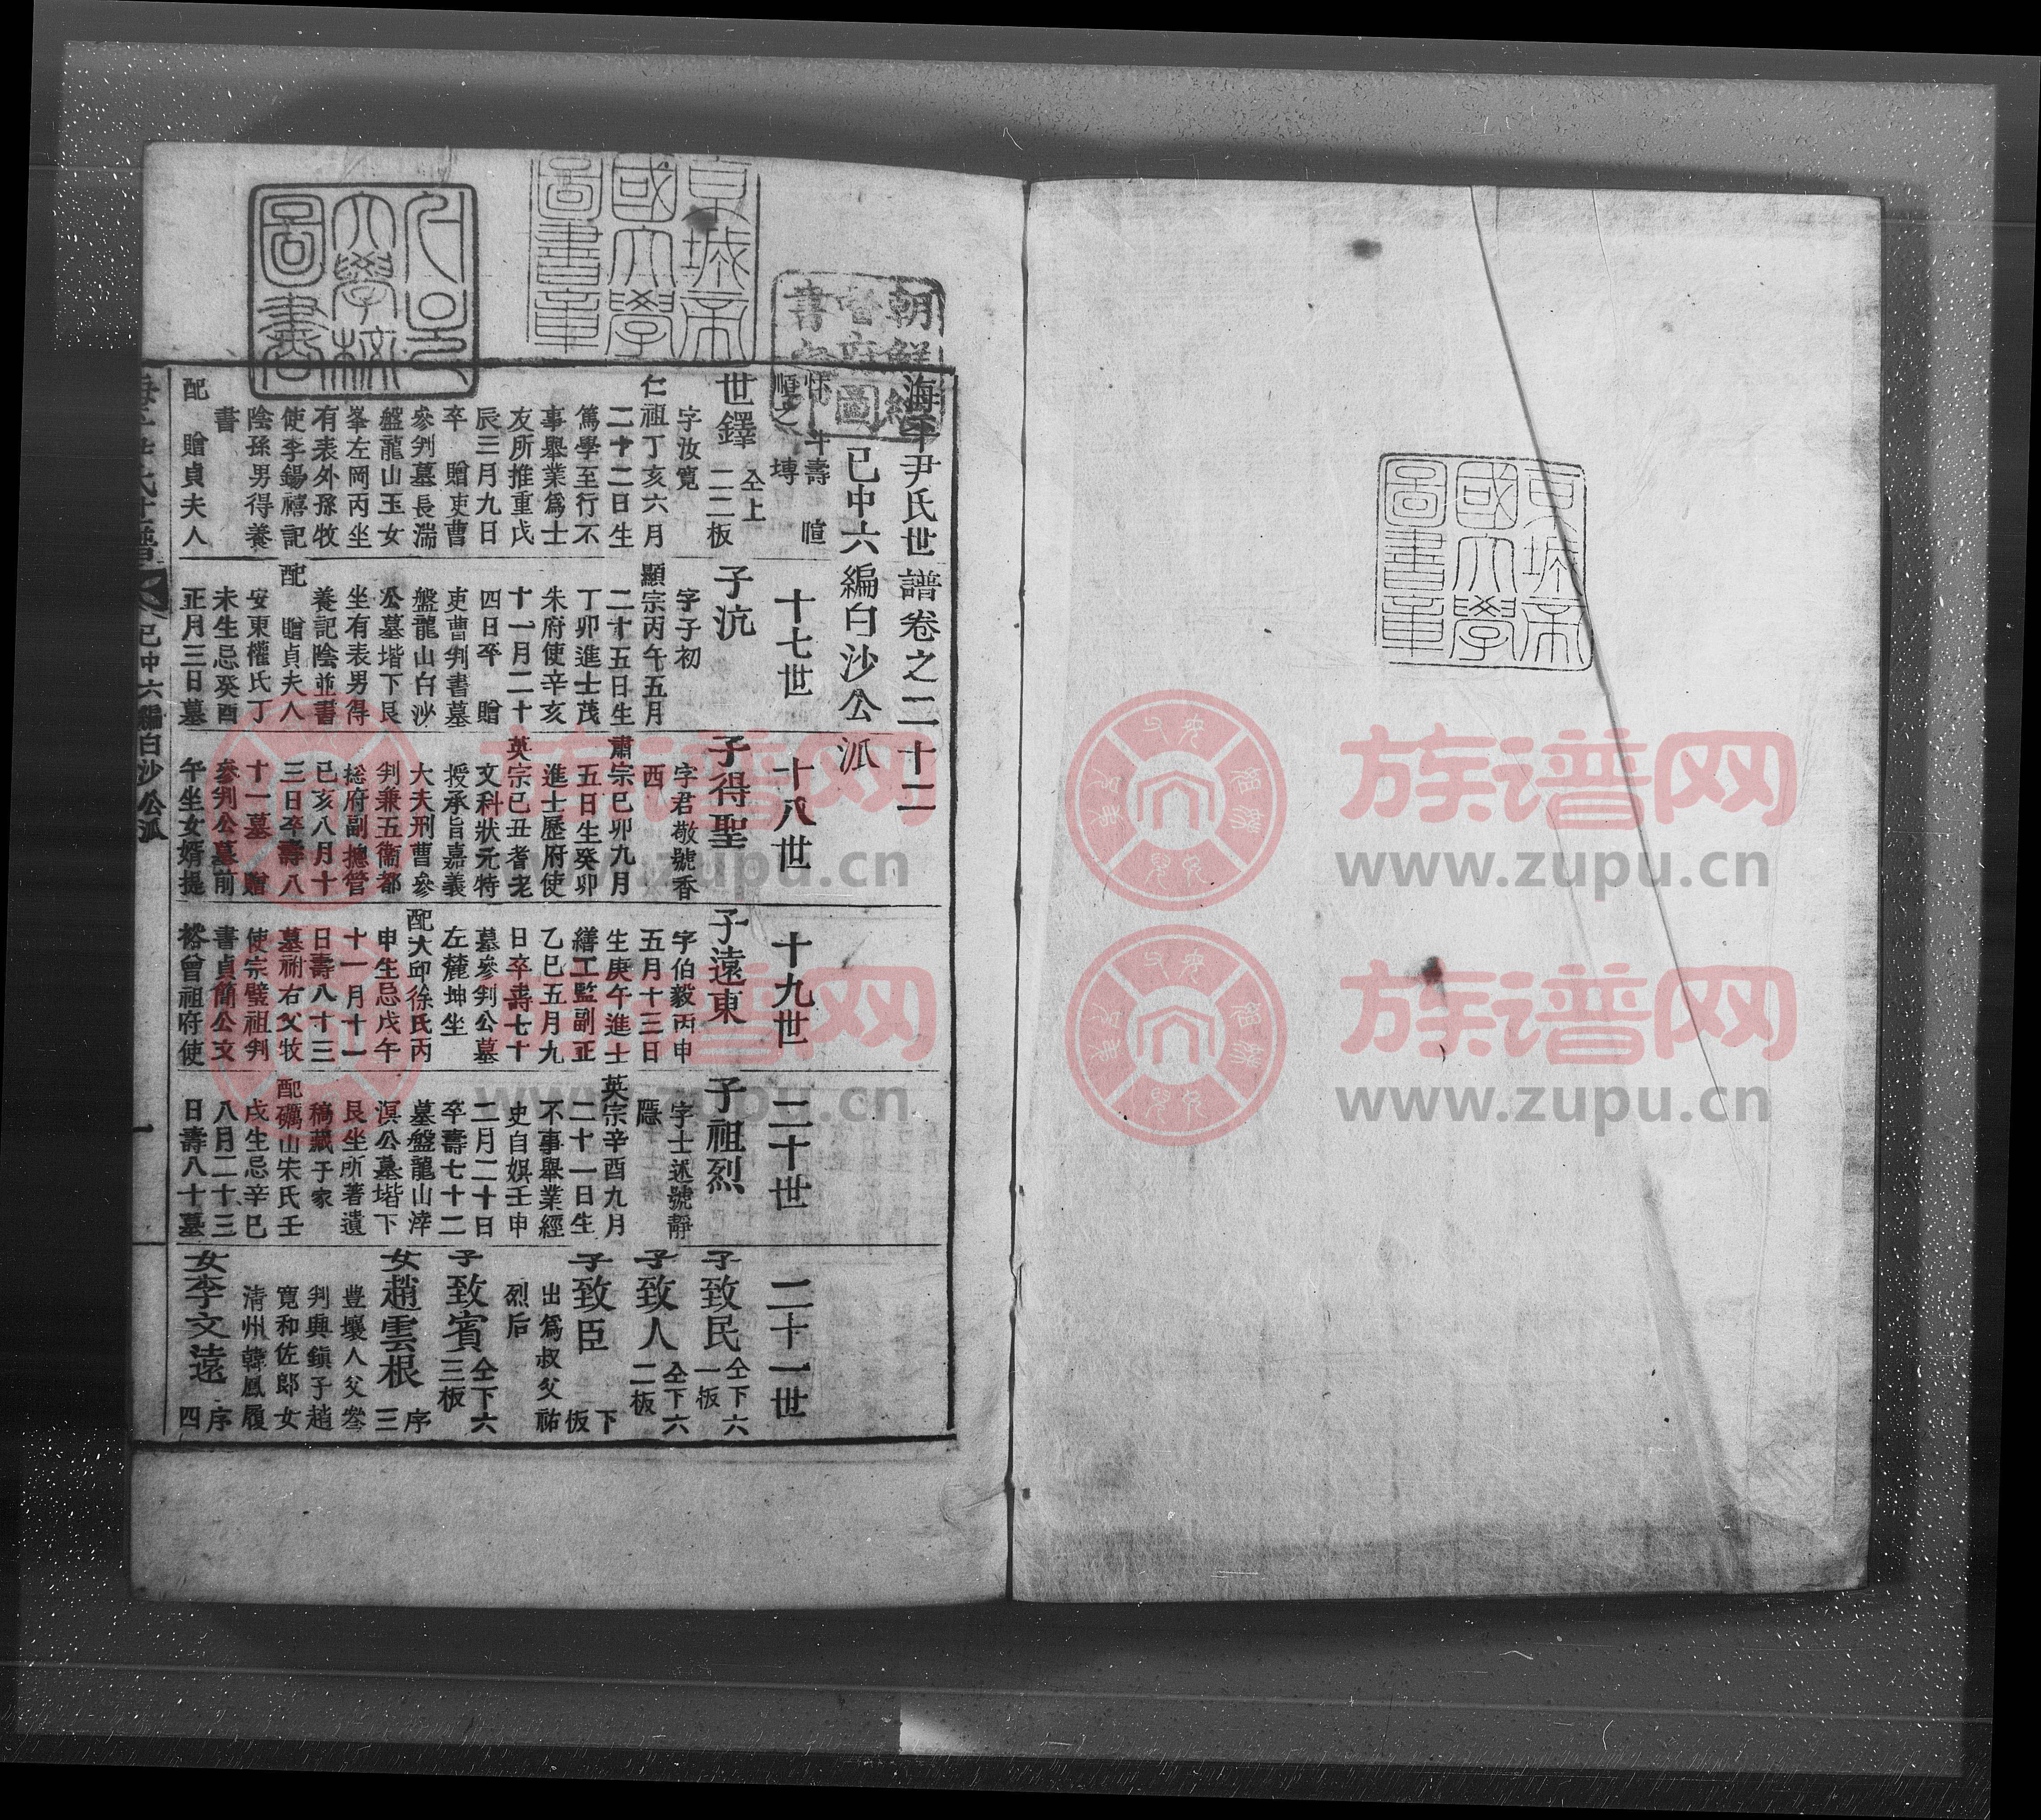 海平尹氏世譜卷之二十二
已中六編白沙公派
斗壽 暄
順之 塼
十七世
十八世
十九世
二十世
二十一世
世鐸 仝上
二二板
字汝寬
仁祖丁亥六月
二十二日生
篤學至行不
事舉業爲士
友所推重戊
辰三月九日
卒 贈吏曹
參判墓長湍
盤龍山玉女
峯左岡丙坐
有表外孫牧
使李錫禧記
陰孫男得養
書
配 贈貞夫人
子沆
字子初
顯宗丙午五月
二十五日生
丁卯進士茂
朱府使辛亥
十一月二十
四日卒 贈
吏曹判書墓
盤龍山白沙
公墓堦下艮
坐有表男得
養記陰並書
配 贈貞夫人
安東權氏丁
未生忌癸酉
正月三日墓
子得聖
字君敬號香
西
肅宗己卯九月
五日生癸卯
進士歷府使
英宗己丑耆老
文科狀元特
授承旨嘉義
大夫刑曹參
判兼五衛都
摠府副摠管
己亥八月十
三日卒壽八
十一墓 贈
參判公墓前
午坐女婿提
子遠東
字伯毅丙申
五月十三日
生庚午進士
繕工監副正
乙巳五月九
日卒壽七十
墓參判公墓
左麓坤坐
配大邱徐氏丙
申生忌戊午
十一月十一
日壽八十三
墓祔右父牧
使宗璧祖判
書貞簡公文
裕曾祖府使
子祖烈
字士述號靜
隱
英宗辛酉九月
二十一日生
不事舉業經
史自娯壬申
二月二十日
卒壽七十二
墓盤龍山涬
溟公墓堦下
艮坐所著遺
稿藏于家
配礪山宋氏壬
戌生忌辛巳
八月二十三
日壽八十墓
子致民 仝下六
一板
子致人 仝下六
二板
子致臣 下
板
出爲叔父祐
烈后
子致賓 仝下六
三板
女趙雲根 序
三
豊壤人父參
判興鎭子趙
寬和佐郎女
清州韓鳳履
女李文遠 序
四
海平尹氏世譜 已中六編白沙公派 一
京城帝國大學圖書章
朝鮮總督府圖書之印
京城帝國大學圖書章
族谱网
www.zupu.cn
族谱网
www.zupu.cn
族谱网
www.zupu.cn
族谱网
www.zupu.cn